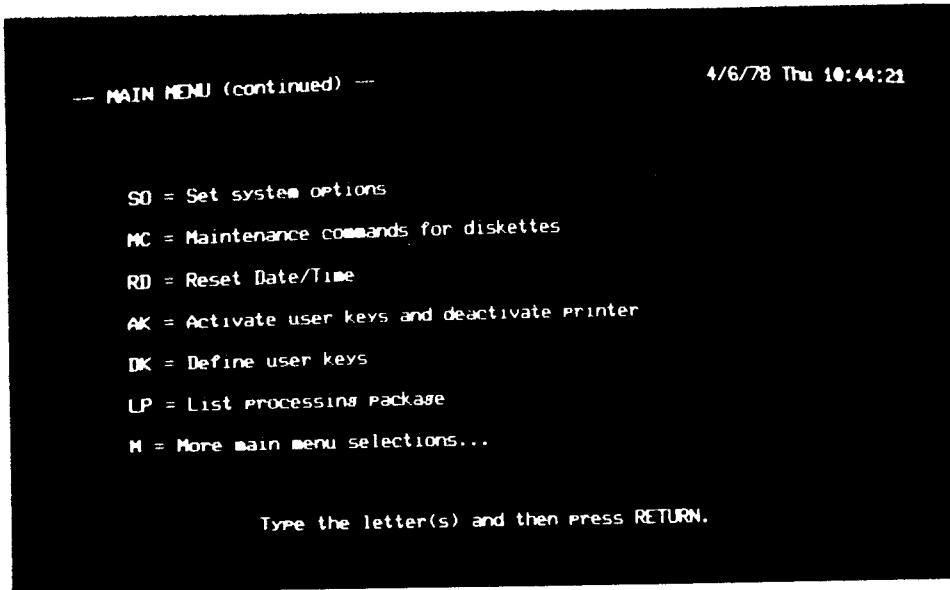 --- MAIN MENU (continued) ---
4/6/78 Thu 10:44:21
SO = Set system options
MC = Maintenance commands for diskettes
RD = Reset Date/Time
AK = Activate user keys and deactivate printer
DK = Define user keys
LP = List processing package
M = More main menu selections...
Type the letter(s) and then press RETURN.